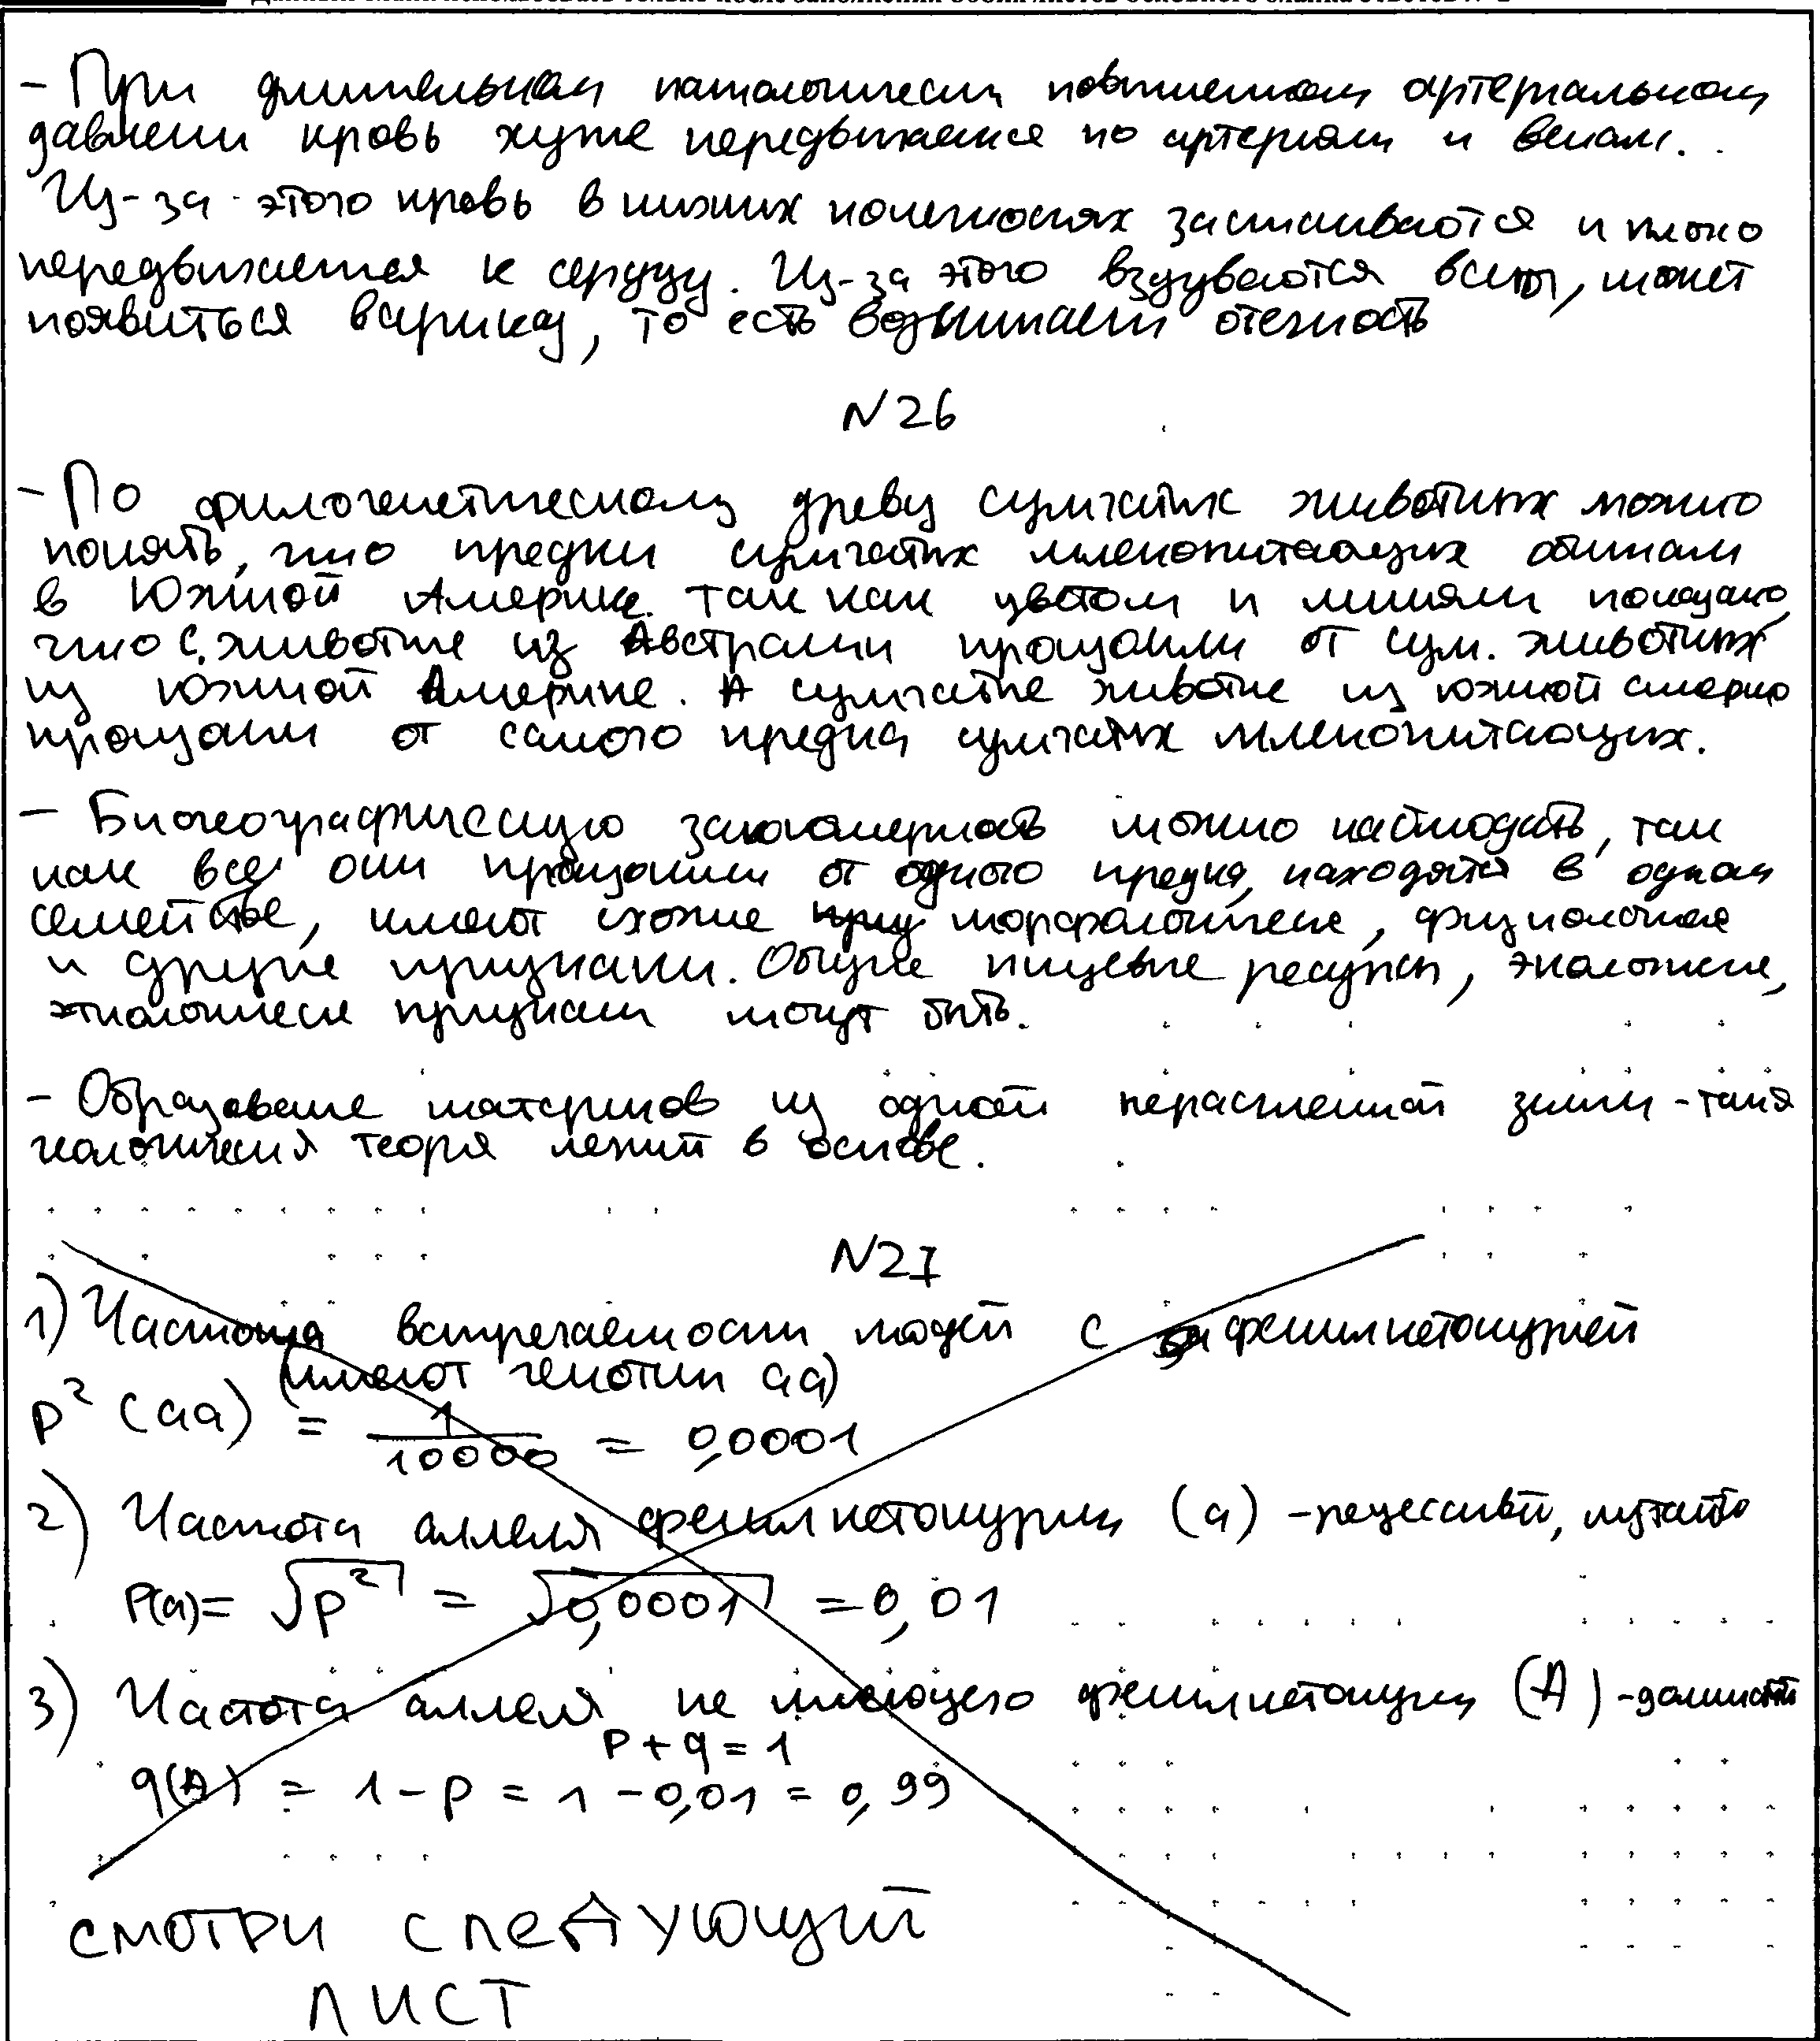 - При длительном патологически повышенном артериальном
давлени кровь хуже передвигается по артериям и венам.
Из-за этого кровь в нижних конечностях застаиваются и плохо
передвигается к сердцу. Из-за этого вздуваются вены, может
появиться варикоз, то есть возникает отечность
N26
- По филогенетическому древу сумчатых животных можно
понять, что предки сумчатых млекопитающих обитали
в Южной Америке так как цветом и линиями показано
что с. животные из Австралии произошли от сум. животных
из южной Америке. А сумчатые животные из южной америки
произошли от самого предка сумчатых млекопитающих.
- Биогеографическую закономерность можно наблюдать, так
как все они произошли от одного предка, находятся в одном
семействе, имеют схожие морфологические, физиологические
и другие признаки. Общие пищевые ресурсы, экологические,
этологические признаки могут быть.
- Образование материков из одной нерасчлененной земли - такая
теория лежит в основе.
N27
1) Частота встречаемости людей с фенилкетонурией
(имеют генотип aa)
p² (aa) = 1/10000 = 0,0001
2) Частота аллеля фенилкетонурии (a) - рецессивный, мутантный
P(a) = √p² = √0,0001 = 0,01
3) Частота аллеля не имеющего фенилкетонурии (A) - доминантный
p + q = 1
q(A) = 1 - p = 1 - 0,01 = 0,99
СМОТРИ СЛЕДУЮЩИЙ
ЛИСТ